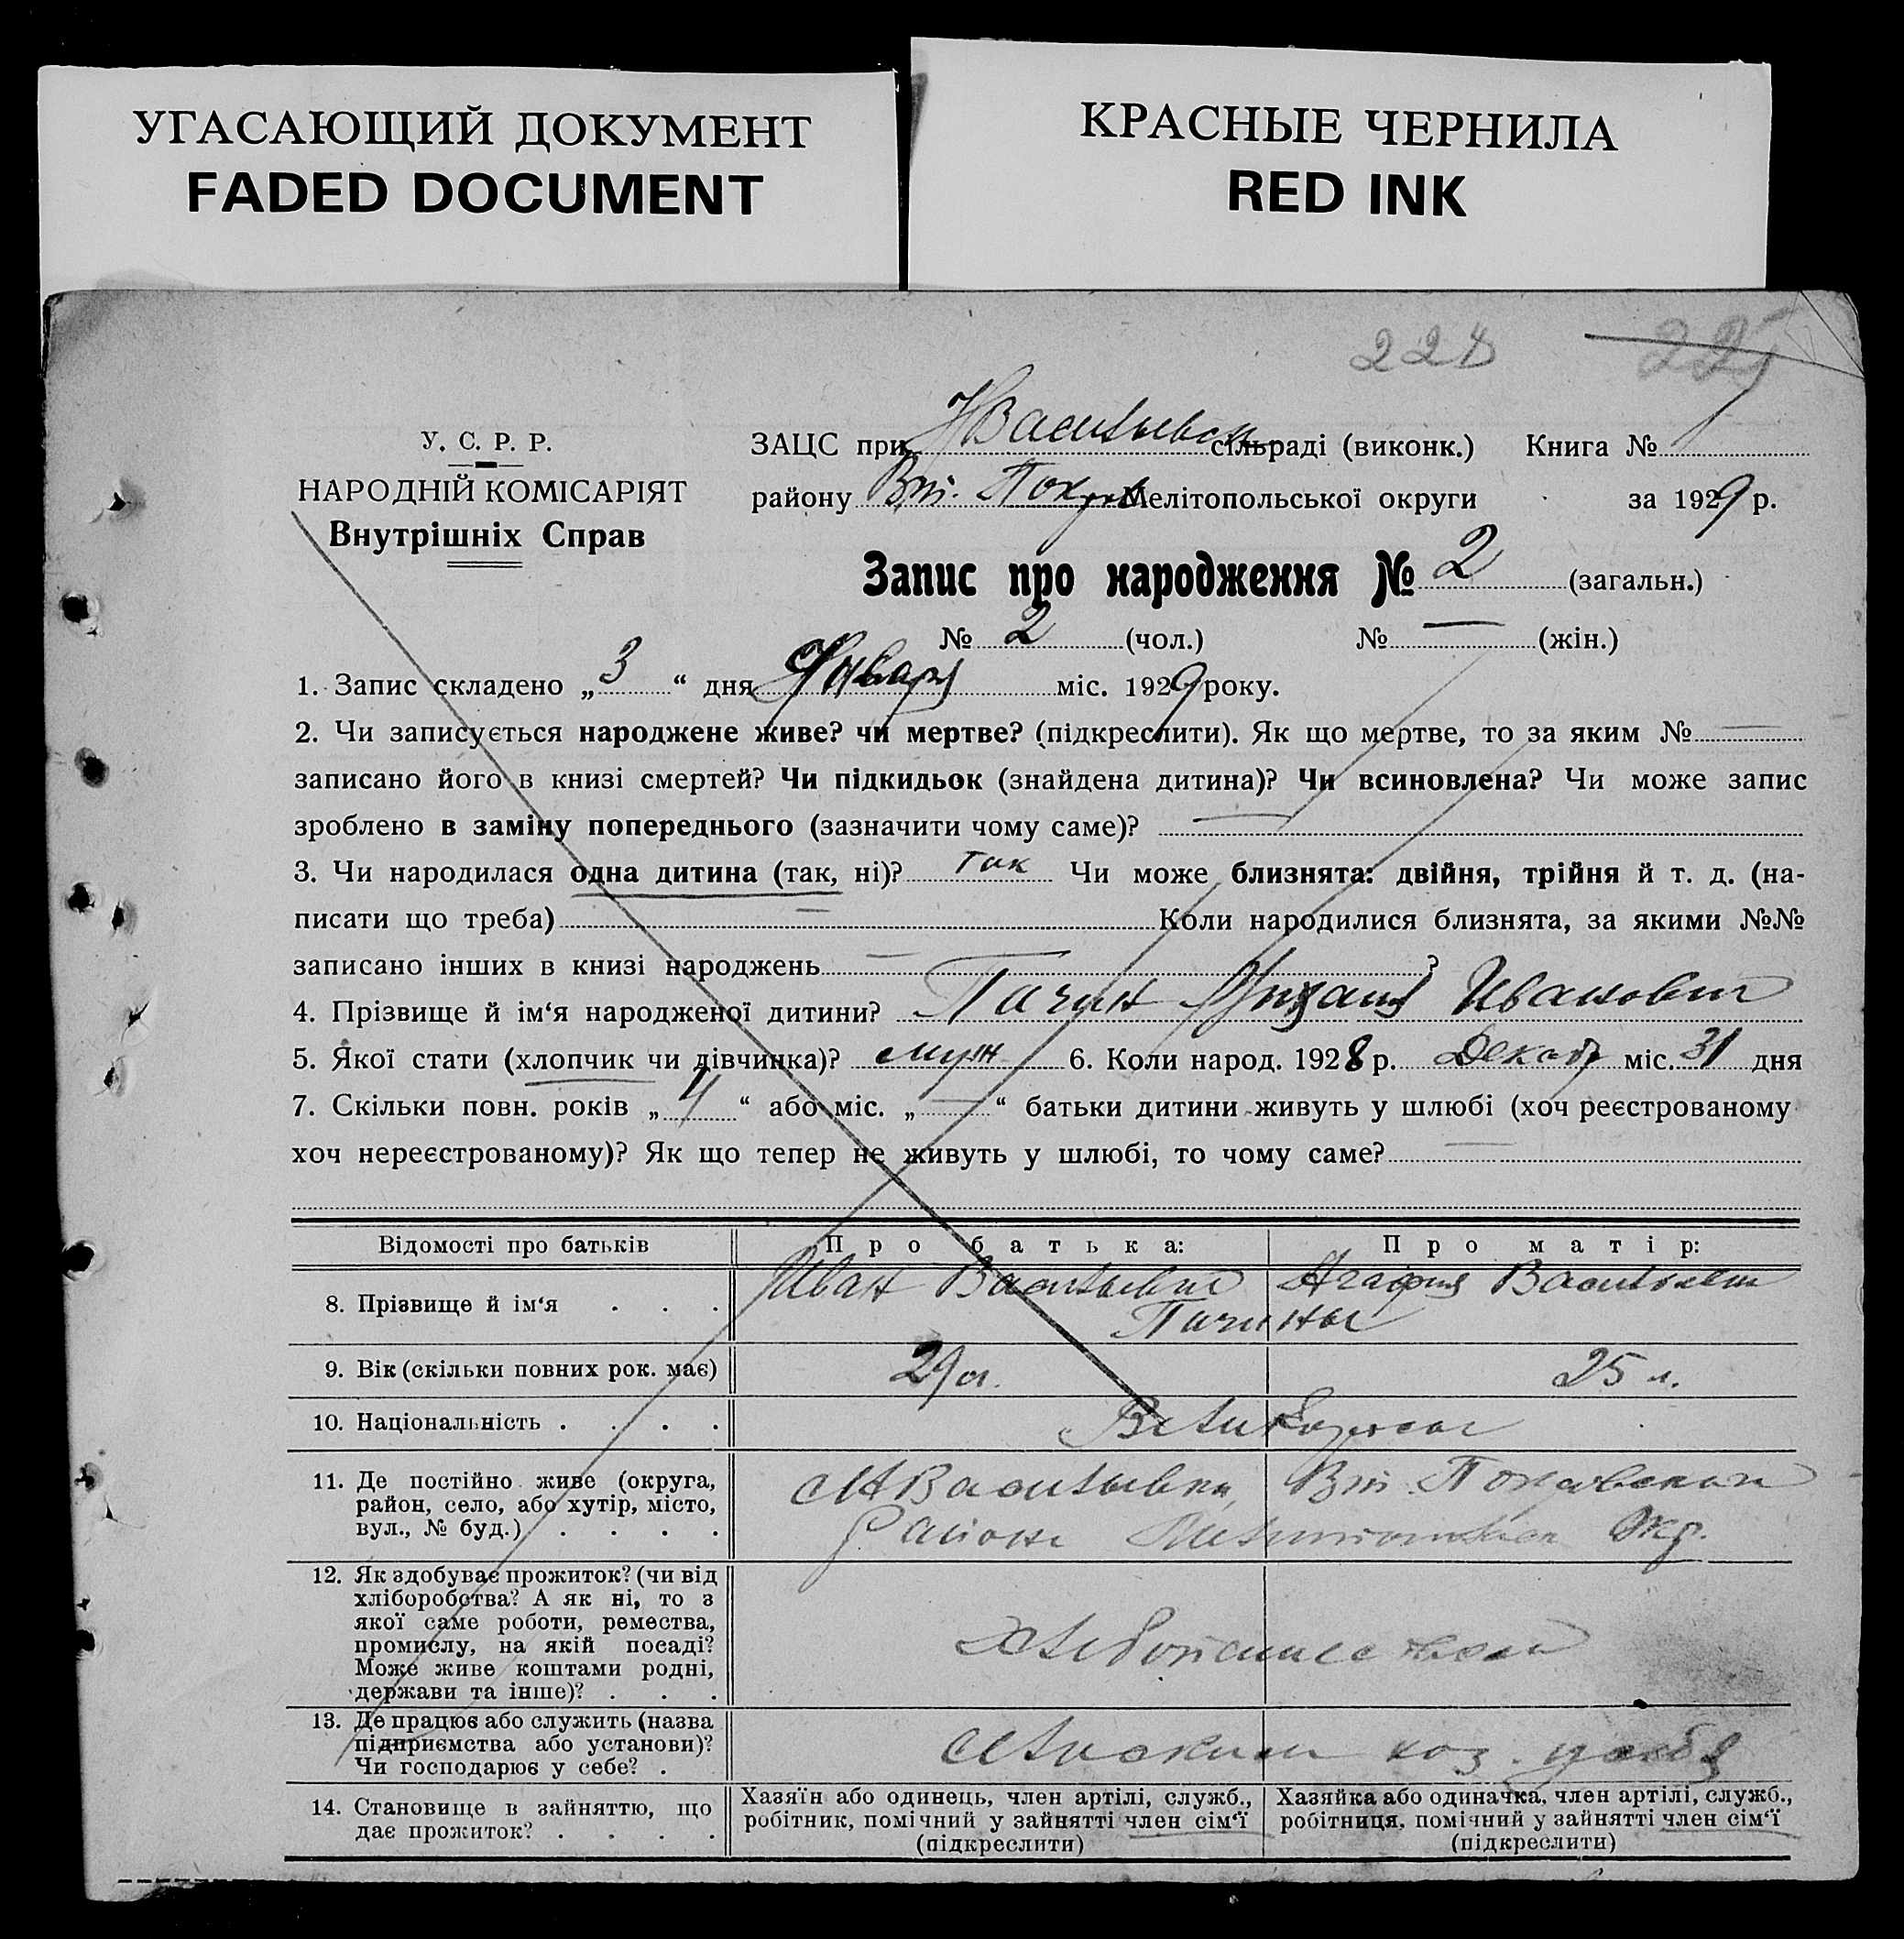 УГАСАЮЩИЙ ДОКУМЕНТ
FADED DOCUMENT
КРАСНЫЕ ЧЕРНИЛА
RED INK
224 225
У. С. Р. Р.
НАРОДНІЙ КОМІСАРІЯТ
Внутрішніх Справ
ЗАЦС при НВасильевск сільраді (виконк.) Книга № 1
району Вт. Покров Мелітопольської округи за 1929 р.
Запис про народження № 2 (загальн.)
№ 2 (чол.) № — (жін.)
1. Запис складено „ 3 “ дня Января міс. 1929 року.
2. Чи записується народжене живе? чи мертве? (підкреслити). Як що мертве, то за яким № —
записано його в книзі смертей? Чи підкидьок (знайдена дитина)? Чи всиновлена? Чи може запис
зроблено в заміну попереднього (зазначити чому саме)? —
3. Чи народилася одна дитина (так, ні)? так Чи може близнята: двійня, трійня й т. д. (на-
писати що треба) — Коли народилися близнята, за якими №№
записано інших в книзі народжень — ?
4. Прізвище й ім‘я народженої дитини? Пачин Михаил Иванович
5. Якої стати (хлопчик чи дівчинка)? муж 6. Коли народ. 1928 р. Декабр міс. 31 дня
7. Скільки повн. років „ 4 “ або міс. „ — “ батьки дитини живуть у шлюбі (хоч реєстрованому
хоч нереєстрованому)? Як що тепер не живуть у шлюбі, то чому саме? —
Відомості про батьків Про батька: Про матір:
8. Прізвище й ім‘я . . . Иван Васильевич Агафия Васильевн
Пачины
9. Вік (скільки повних рок. має) 29 л. 25 л.
10. Національність . . . . Великорусы
11. Де постійно живе (округа,
район, село, або хутір, місто,
вул., № буд.) . . . .
НВасильевка, Вт. Покровского
Района Мелитопольск Окр.
12. Як здобуває прожиток? (чи від
хліборобства? А як ні, то з
якої саме роботи, ремества,
промислу, на якій посаді?
Може живе коштами родні,
держави та інше)? . . .
Хлебопашеством
13. Де працює або служить (назва
підприємства або установи)?
Чи господарює у себе? .
хоз. у себя
14. Становище в зайняттю, що
дає прожиток? . . . .
Хазяїн або одинець, член артілі, служб.,
робітник, помічний у зайнятті член сім‘ї
(підкреслити)
Хазяйка або одиначка, член артілі, служб.,
робітниця, помічний у зайнятті член сім‘ї
(підкреслити)